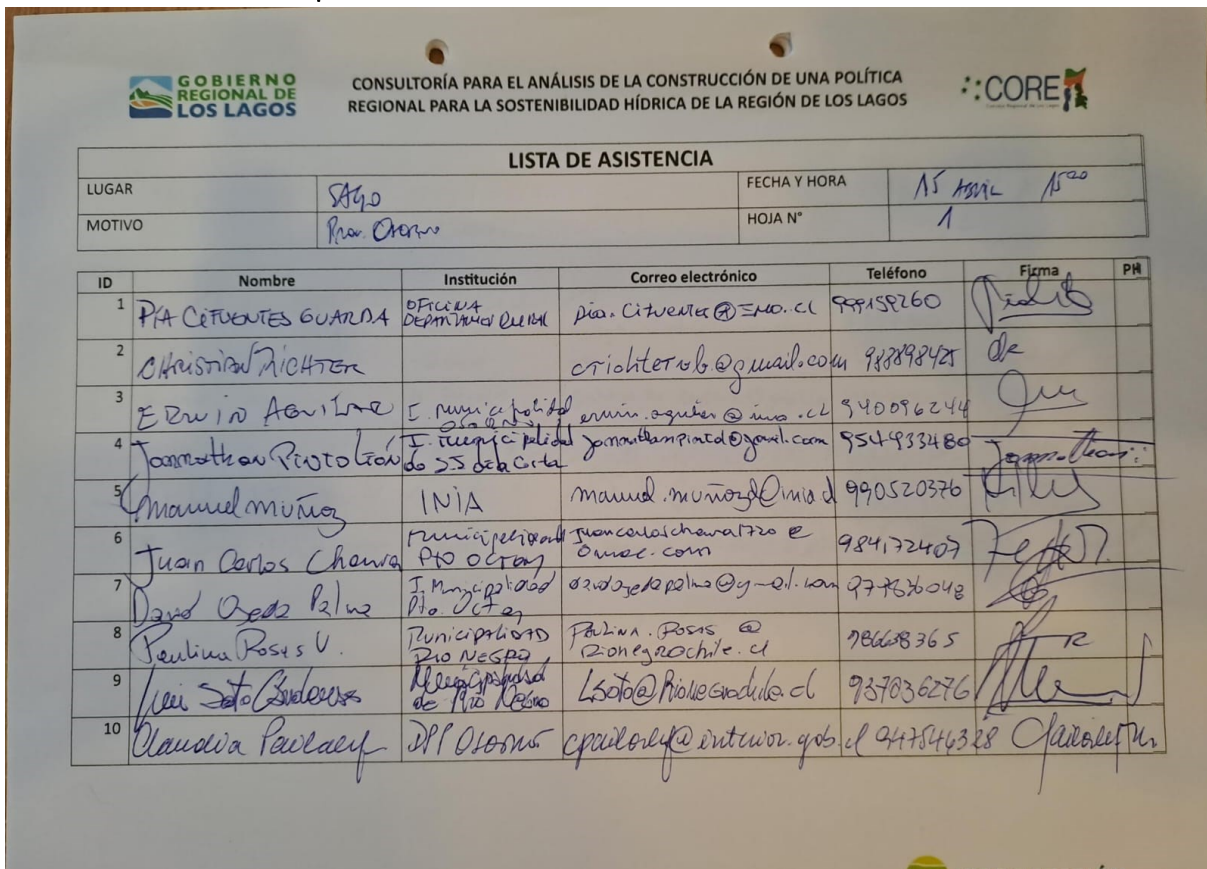 GOBIERNO
REGIONAL DE
LOS LAGOS
CONSULTORÍA PARA EL ANÁLISIS DE LA CONSTRUCCIÓN DE UNA POLÍTICA
REGIONAL PARA LA SOSTENIBILIDAD HÍDRICA DE LA REGIÓN DE LOS LAGOS
CORE
LISTA DE ASISTENCIA
LUGAR SAGO FECHA Y HORA 15 ABRIL 1500
MOTIVO Prov. Osorno HOJA N° 1
ID Nombre Institución Correo electrónico Teléfono Firma PH
1 PIA CIFUENTES GUARDA OFICINA RURAL pia.cifuentes@imo.cl 999159260
2 CHRISTIAN RICHTER @gmail.com
3 ERWIN AGUILAR I. Municipalidad Osorno erwin.aguilar@imo.cl 940096244
4 Jonnathan Pinto León I. Municipalidad de S.J de la Costa @gmail.com 954933480 Jonnathan
5 Manuel muñoz INIA manuel.muñozd@inia.cl 990520376
6 Juan Carlos Municipalidad Pto Octay
7 David Ojeda Palma I. Municipalidad Pto. Octay davidojedapalma@gmail.com
8 Paulina Rosas V. MUNICIPALIDAD RIO NEGRO Paulina.Rosas@rionegrochile.cl
9 Luis Soto Municipalidad de Río Negro Lsoto@rionegrochile.cl 937036276
10 Claudia DPP Osorno 947546328